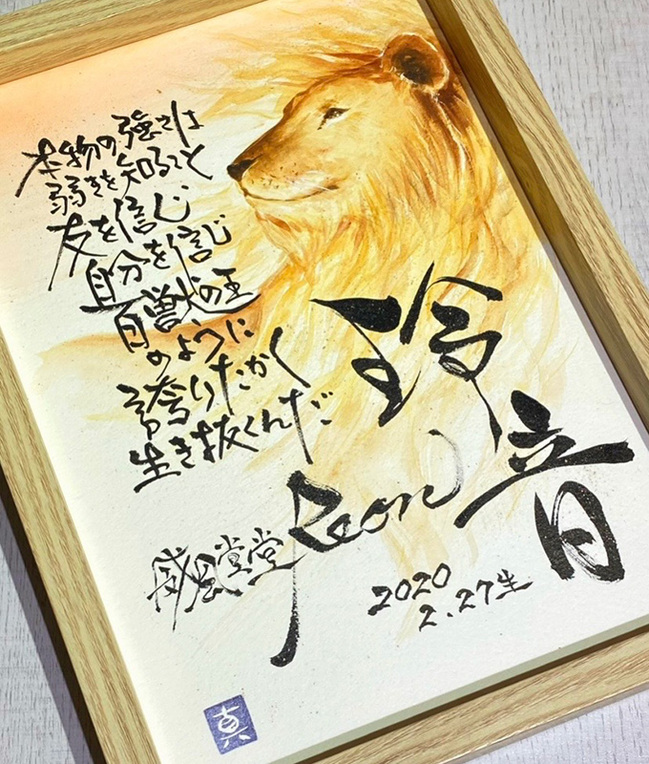 本物の強さは
弱さを知ること
友を信じ
自分を信じ
百獣の王
のように
誇りたかく
生き抜くんだ
玲音
Reon
威風堂堂
2020
2.27生
真